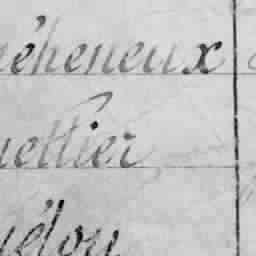 éheneux
uettier
élou